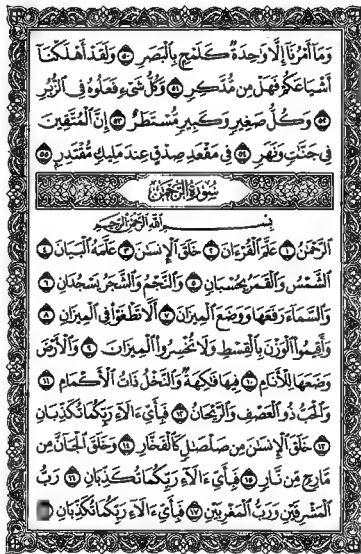 وَمَا أَمْرُنَا إِلَّا وَاحِدَةٌ كَلَمْحٍ بِالْبَصَرِ ٥٠ وَلَقَدْ أَهْلَكْنَا
أَشْيَاعَكُمْ فَهَلْ مِن مُّدَّكِرٍ ٥١ وَكُلُّ شَيْءٍ فَعَلُوهُ فِي الزُّبُرِ
٥٢ وَكُلُّ صَغِيرٍ وَكَبِيرٍ مُّسْتَطَرٌ ٥٣ إِنَّ الْمُتَّقِينَ
فِي جَنَّٰتٍ وَنَهَرٍ ٥٤ فِي مَقْعَدِ صِدْقٍ عِندَ مَلِيكٍ مُّقْتَدِرٍ ٥٥
سُورَةُ الرَّحْمَٰنِ
بِسْمِ اللَّهِ الرَّحْمَٰنِ الرَّحِيمِ
الرَّحْمَٰنُ ١ عَلَّمَ الْقُرْءَانَ ٢ خَلَقَ الْإِنسَٰنَ ٣ عَلَّمَهُ الْبَيَانَ ٤
الشَّمْسُ وَالْقَمَرُ بِحُسْبَانٍ ٥ وَالنَّجْمُ وَالشَّجَرُ يَسْجُدَانِ ٦
وَالسَّمَاءَ رَفَعَهَا وَوَضَعَ الْمِيزَانَ ٧ أَلَّا تَطْغَوْا فِي الْمِيزَانِ ٨
وَأَقِيمُوا الْوَزْنَ بِالْقِسْطِ وَلَا تُخْسِرُوا الْمِيزَانَ ٩ وَالْأَرْضَ
وَضَعَهَا لِلْأَنَامِ ١٠ فِيهَا فَٰكِهَةٌ وَالنَّخْلُ ذَاتُ الْأَكْمَامِ ١١
وَالْحَبُّ ذُو الْعَصْفِ وَالرَّيْحَانُ ١٢ فَبِأَيِّ ءَالَاءِ رَبِّكُمَا تُكَذِّبَانِ
١٣ خَلَقَ الْإِنسَٰنَ مِن صَلْصَٰلٍ كَالْفَخَّارِ ١٤ وَخَلَقَ الْجَانَّ مِن
مَّارِجٍ مِّن نَّارٍ ١٥ فَبِأَيِّ ءَالَاءِ رَبِّكُمَا تُكَذِّبَانِ ١٦ رَبُّ
الْمَشْرِقَيْنِ وَرَبُّ الْمَغْرِبَيْنِ ١٧ فَبِأَيِّ ءَالَاءِ رَبِّكُمَا تُكَذِّبَانِ